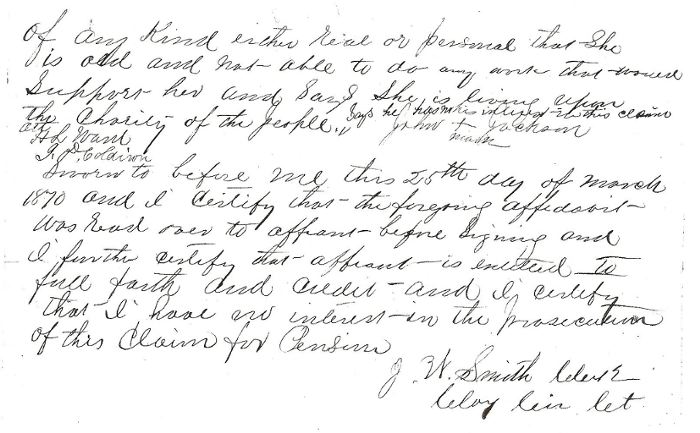 of any Kind either real or personal that She
is old and not able to do any work that would
Support her and Says She is living upon
the Charity of the people. " Says he has no interest in this claim
at H L Ward John + Jackson
T. P. Coldiron mark
Sworn to before me this 25th day of March
1870 and I certify that the foregoing affidavit
was read over to affiant before Signing and
I further certify that affiant is entitled To
full faith and credit and I certify
that I have no interest in the prosecution
of this Claim for Pension
J. W. Smith Clerk
Clay Cir Ct.